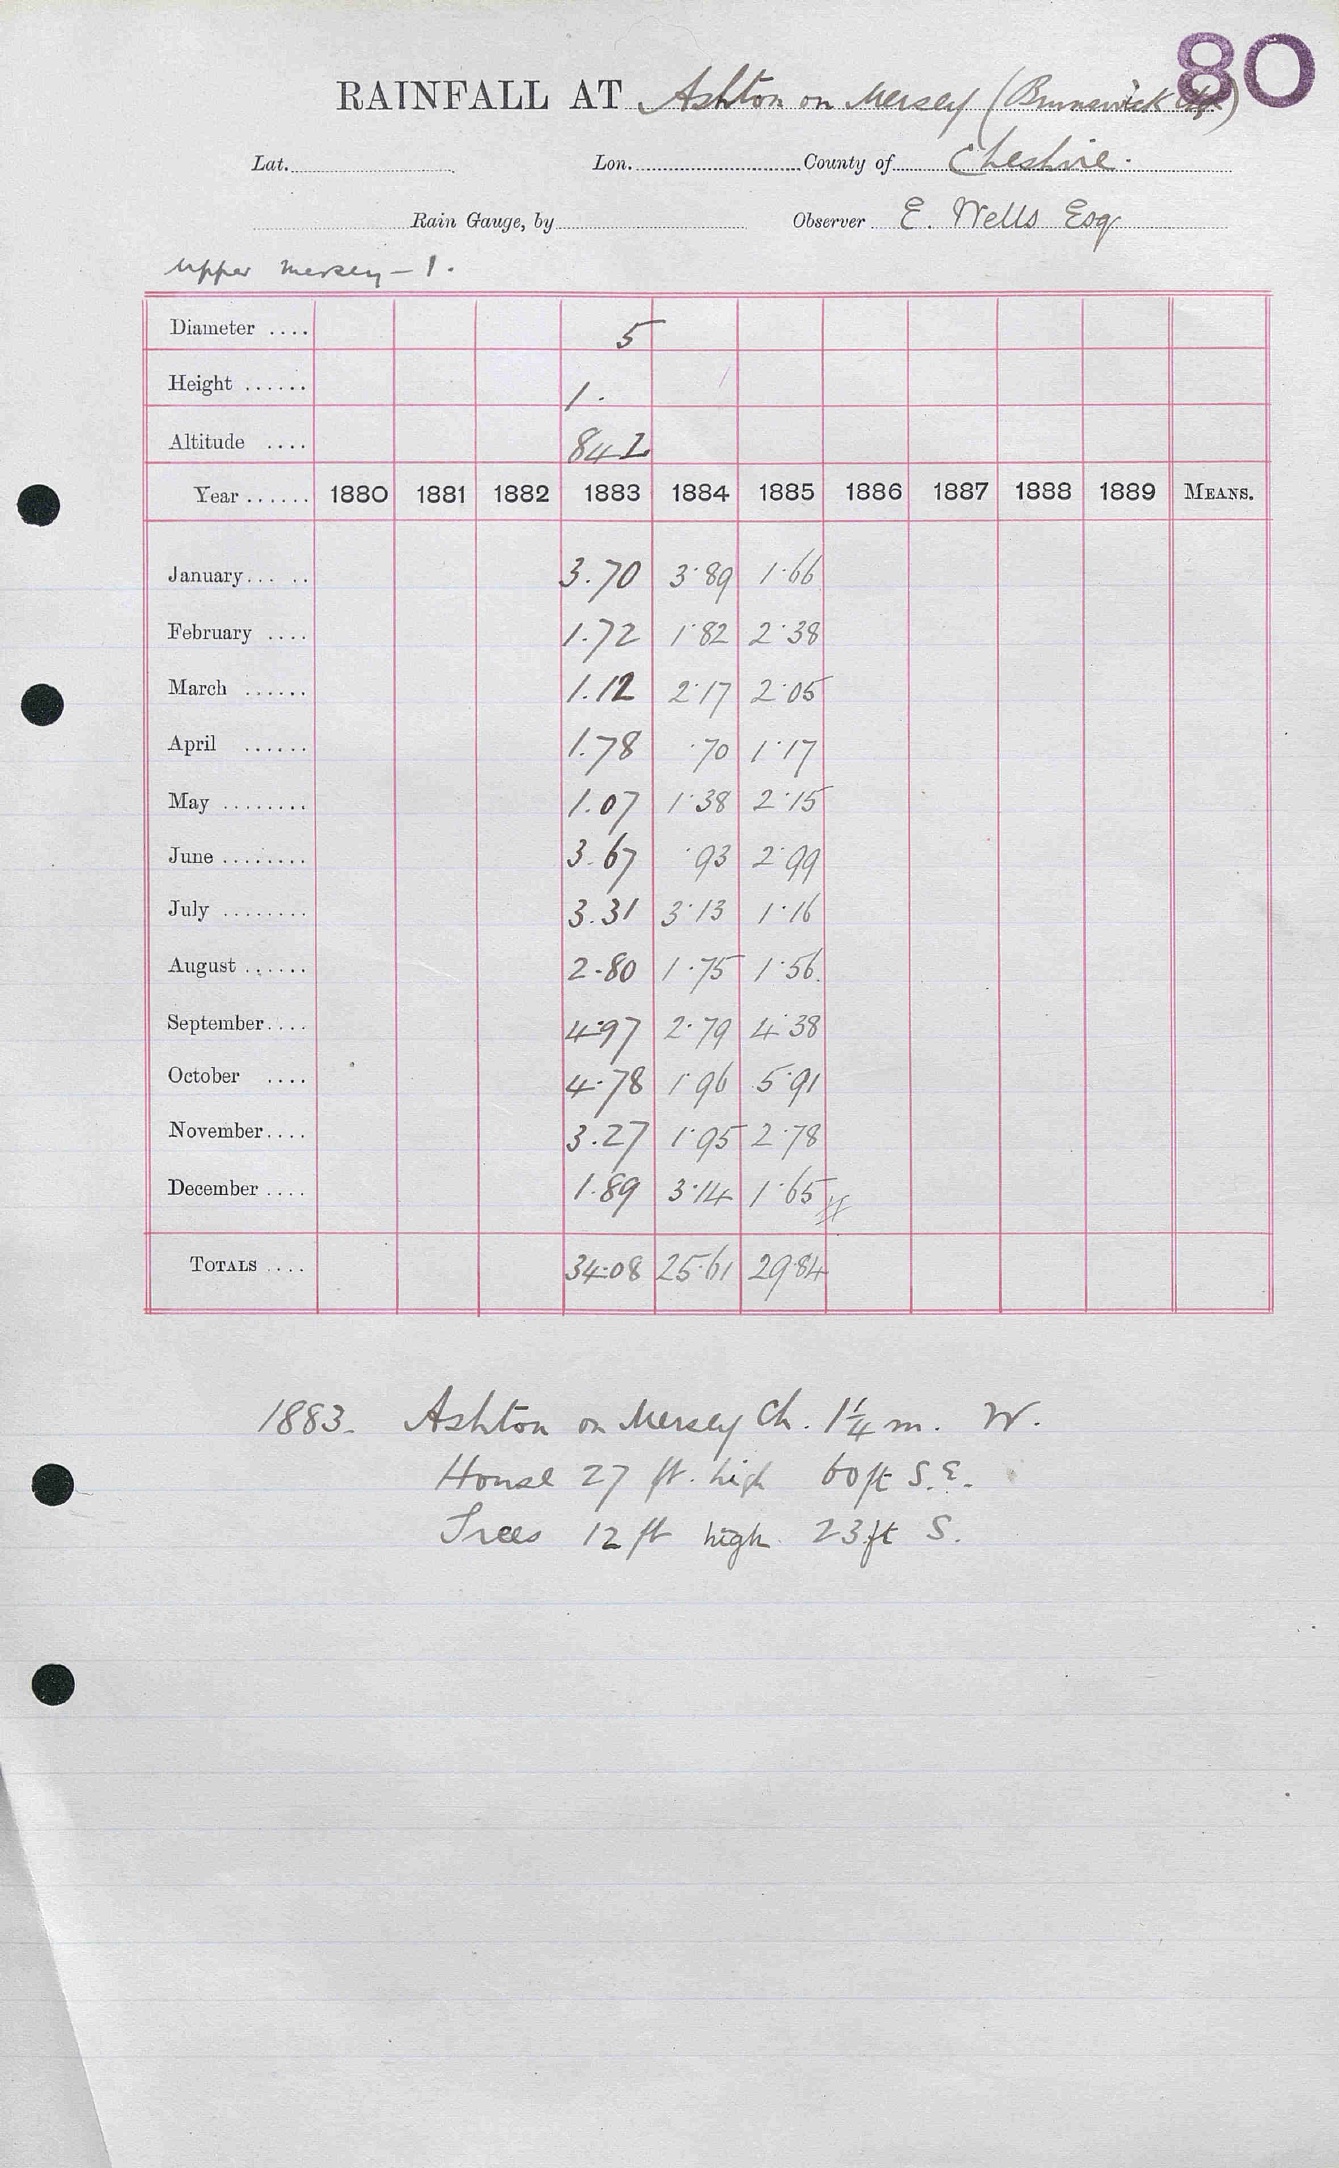 80
RAINFALL AT Ashton on Mersey (Brunswick
Lat. Lon. County of Cheshire.
Rain Gauge, by Observer E. Wells Esq
Upper Mersey – 1.
Diameter .... 5
Height ...... 1.
Altitude .... 84
Year ...... 1880 1881 1882 1883 1884 1885 1886 1887 1888 1889 MEANS.
January... .. 3.70 3.89 1.66
February .... 1.72 1.82 2.38
March ...... 1.12 2.17 2.05
April ...... 1.78 .70 1.17
May ........ 1.07 1.38 2.15
June ........ 3.67 .93 2.99
July ........ 3.31 3.13 1.16
August ...... 2.80 1.75 1.56
September.... 4.97 2.79 4.38
October .... 4.78 1.96 5.91
November.... 3.27 1.95 2.78
December .... 1.89 3.14 1.65
TOTALS .... 34.08 25.61 29.84
1883. Ashton on Mersey Ch. 1¼ m. W.
House 27 ft. high 60ft S.E.
Trees 12 ft high 23ft S.